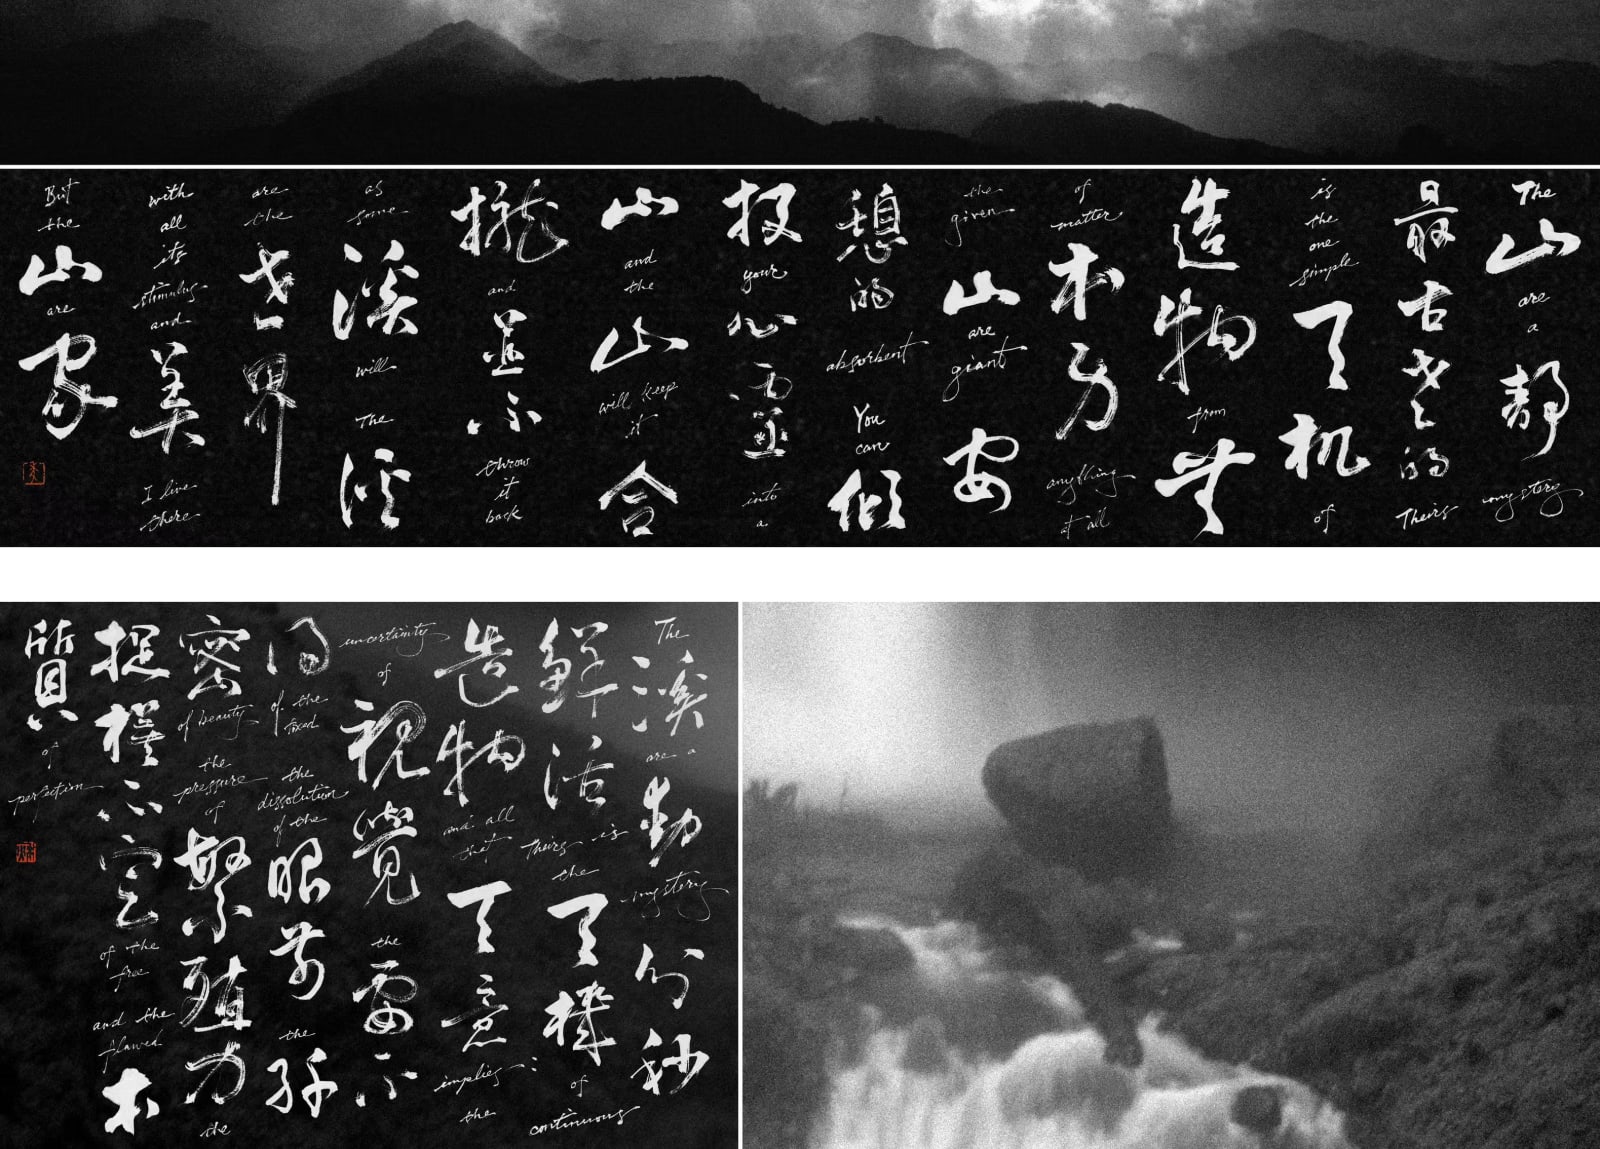 The 山 are a 靜 mystery
最古老的 Theirs
is the one simple 天机 of
造物 from 無
of matter 本身 anything at all
the given 山 are giant 安
憩的 absorbent You can 傾
投 your 心靈 into a
山 and the 山 will keep it 合
攏 and 並不 throw it back
as some 溪 will The 溪
are the 世界
with all its stimulus and 美 I live there
But the 山 are 家
The 溪 are a 動 mystery 分秒
鮮活 Theirs is the 天機 of continuous
造物 and all that 天意 implies: the
uncertainty of 視覺 the 要不
得 of the fixed the dissolution of the 眼前 the
密 of beauty the pressure of 繁殖力 the
捉摸不定 of the free and the flawed 本
質 of perfection